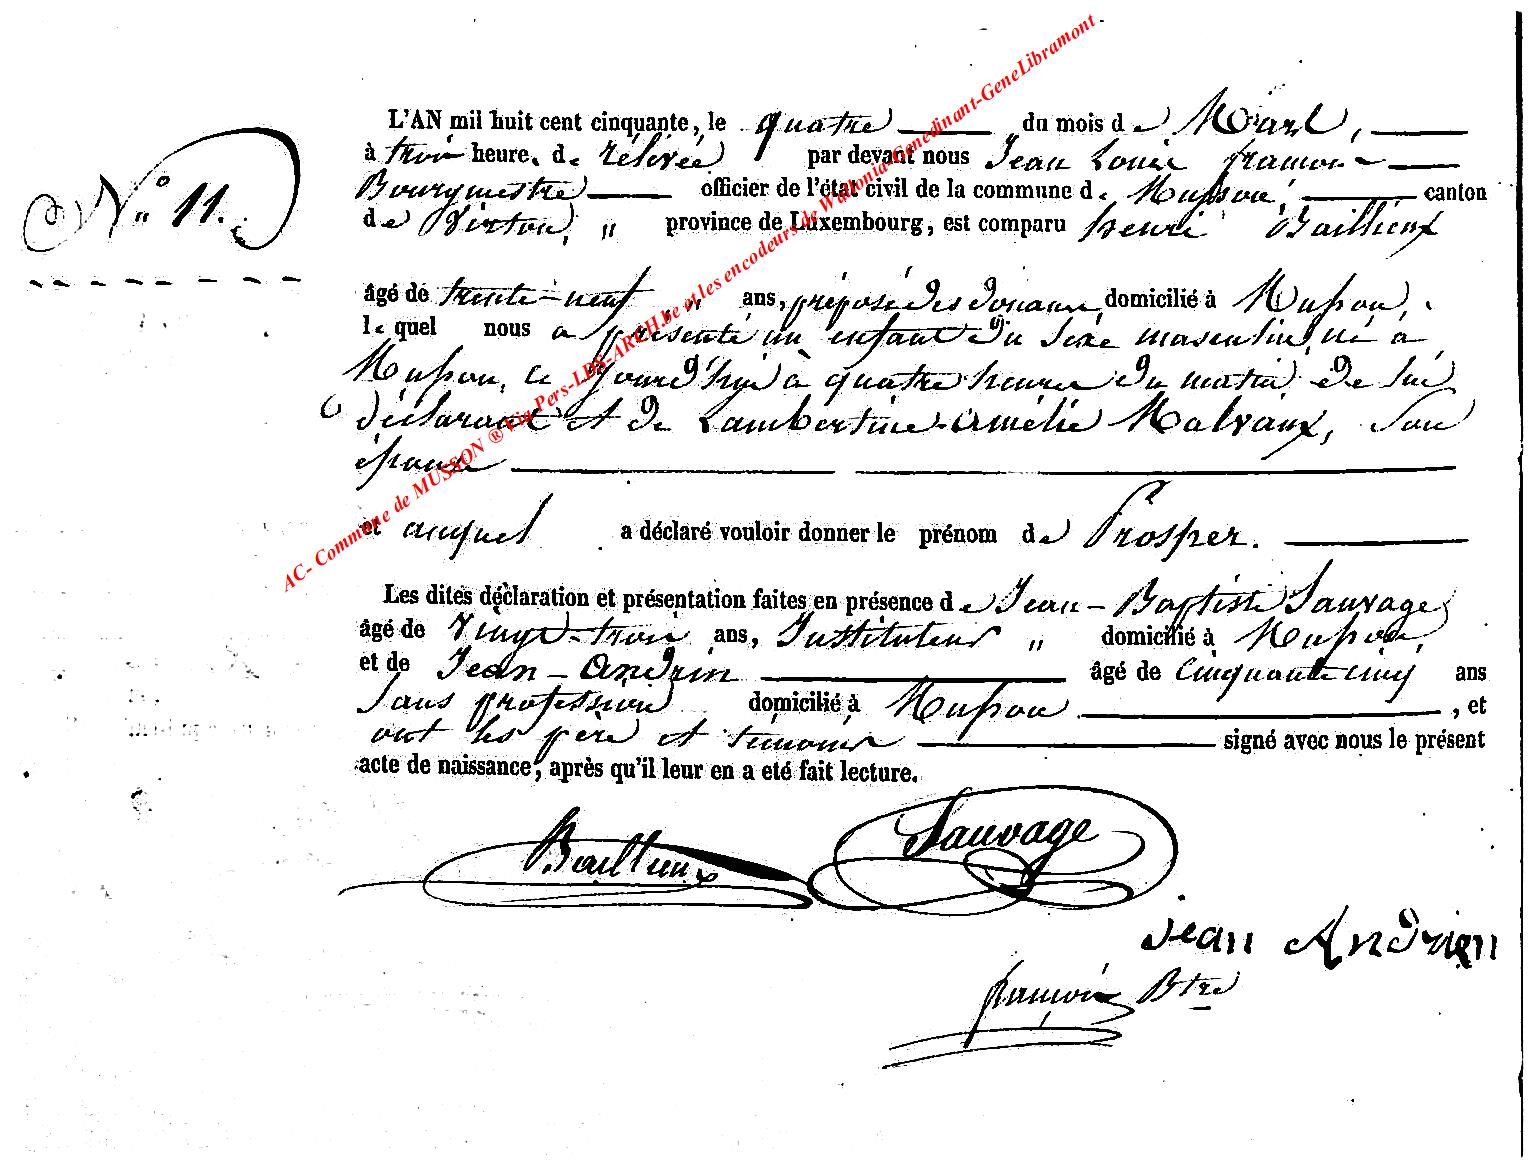 L'AN mil huit cent cinquante, le quatre du mois de Mars,
à trois heure. de rélevée par devant nous Jean Louis françois
N.° 11.
Bourgmestre officier de l'état civil de la commune de Musson, canton
de Virton, " province de Luxembourg, est comparu henri Baillieux
âgé de trente-neuf " ans, préposé des douanes domicilié à Musson,
le quel nous a présenté un enfant du sexe masculin, né à
Musson, ce jourd'hui à quatre heures du matin de lui
déclarant et de Lambertine-Amélie Malvaux, son
épouse
et auquel a déclaré vouloir donner le prénom de Prosper.
Les dites déclaration et présentation faites en présence de Jean-Baptiste Sauvage
âgé de Vingt-trois ans, Instituteur " domicilié à Musson,
et de Jean-Andrin âgé de Cinquante cinq ans
Sans profession domicilié à Musson , et
ont les père et témoins signé avec nous le présent
acte de naissance, après qu'il leur en a eté fait lecture.
Baillieux Sauvage
jean Andrien
françois Btre
AC- Commune de MUSSON ® Via Pers-LDS-ARCH.be et les encodeurs de Wallonia-Genedinant-GeneLibramont